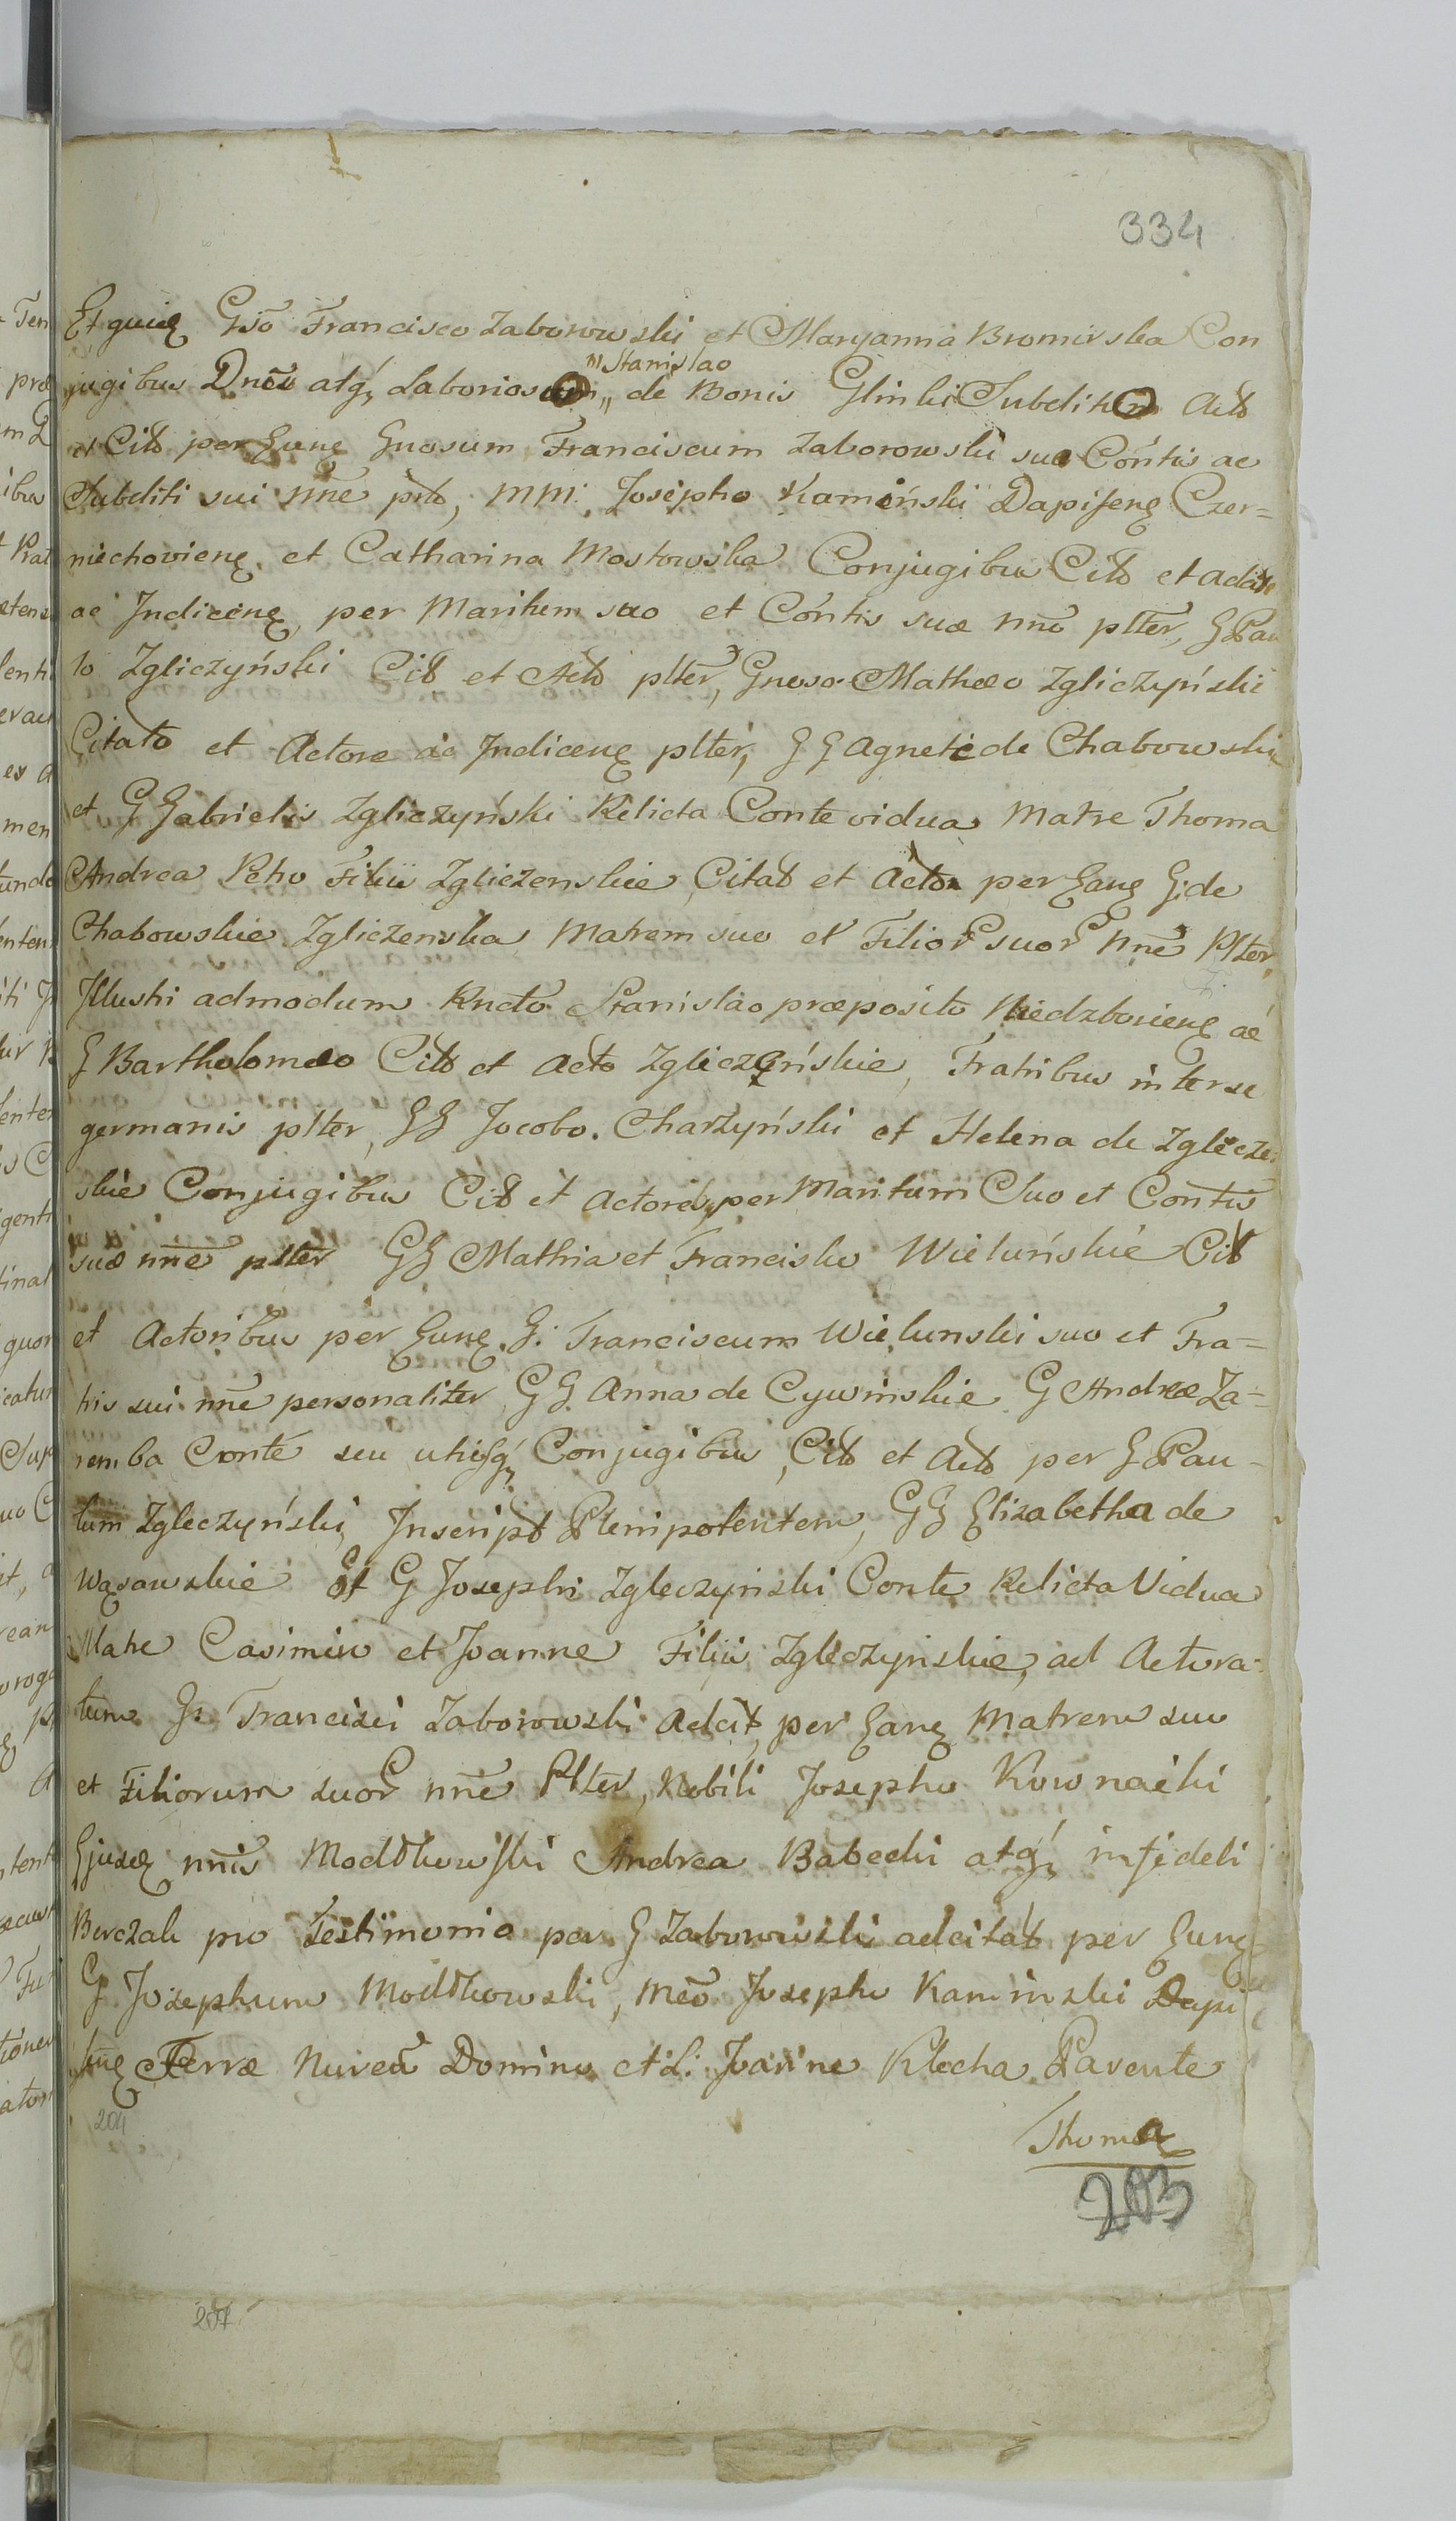 334
Et quidẽ Gñso Francisco Zaborowski et Maryanna Bromirska Con
jugibus Dnõs atq, Laborioso „ Stanislao de Bonis Glinki Subdito Actõ
et Citõ per Eunẽ Gnosum Franciscum Zaborowski suo Cõntis ac
Subditi sui nñe pñto, MM. Josepho Kamiński Dapifenẽ Czer=
niechovienẽ et Catharina Mostowska Conjugibus Citõ et adcit
ac Indicenẽ, per Maritum suo et Cõntis suæ nñe plter, G Pau
lo Zgliczyński Citõ et Actõ plter, Gnoso Mathæo Zgliczyński
Citato et Actore ac Indicenẽ plter, GG Agnete de Chabowskie
et G Gabrielis Zgliczyński Relicta Conte vidua Matre Thoma
Andrea Petro Filiis Zgliczenskie, Citat et Actor per Eanẽ G: de
Chabowskie Zgliczenska Matrem suo et Filior suor nñe Plter,
Illustri admodum Rndo Stanislao præposito Niedzbovienẽ ac
G Bartholomæo Citõ et Acto Zgliczyńskie, Fratribus inter se
germanis plter, GG Jocobo. Charzyński et Helena de Zglecze
skie Conjugibus Citõ et Actores, per Maritum Suo et Contis
suæ nñe plter GG Mathia et Francisko Wieluńskie Citõ
et Actoribus per Eunẽ G: Franciscum Wielunski suo et Fra=
tris sui nñe personaliter GG. Anna de Cywinskie G Andreæ Za=
remba Conte seu utrisq, Conjugibus, Citõ et Actõ per G Pau-
lum Zgleczyński, Inscript Plenipotentem, GG Elizabetha de
Wąsowskie et G Josephi Zgleczyński Conte Relicta Vidua
Matre Casimiro et Joanne Filiis Zgleczyńskie, ad Actora-
tum G: Francisci Zaborowski Adcit, per Eanẽ Matrem suo
et Filiorum suor nñe Plter, Nobili Josepho Kownacki
Ejusdẽ nñis Modtkowski Andrea Babecki atq, infideli
Berczak pro Testimonio per G Zaborowski adcitat per Eunẽ
G Josephum Modtkowski, Mcõ Josepho Kaminski Dapi
fenẽ Terræ Nurẽn Domino et L: Joanne Klecha Parente
Thoma
204
203
207